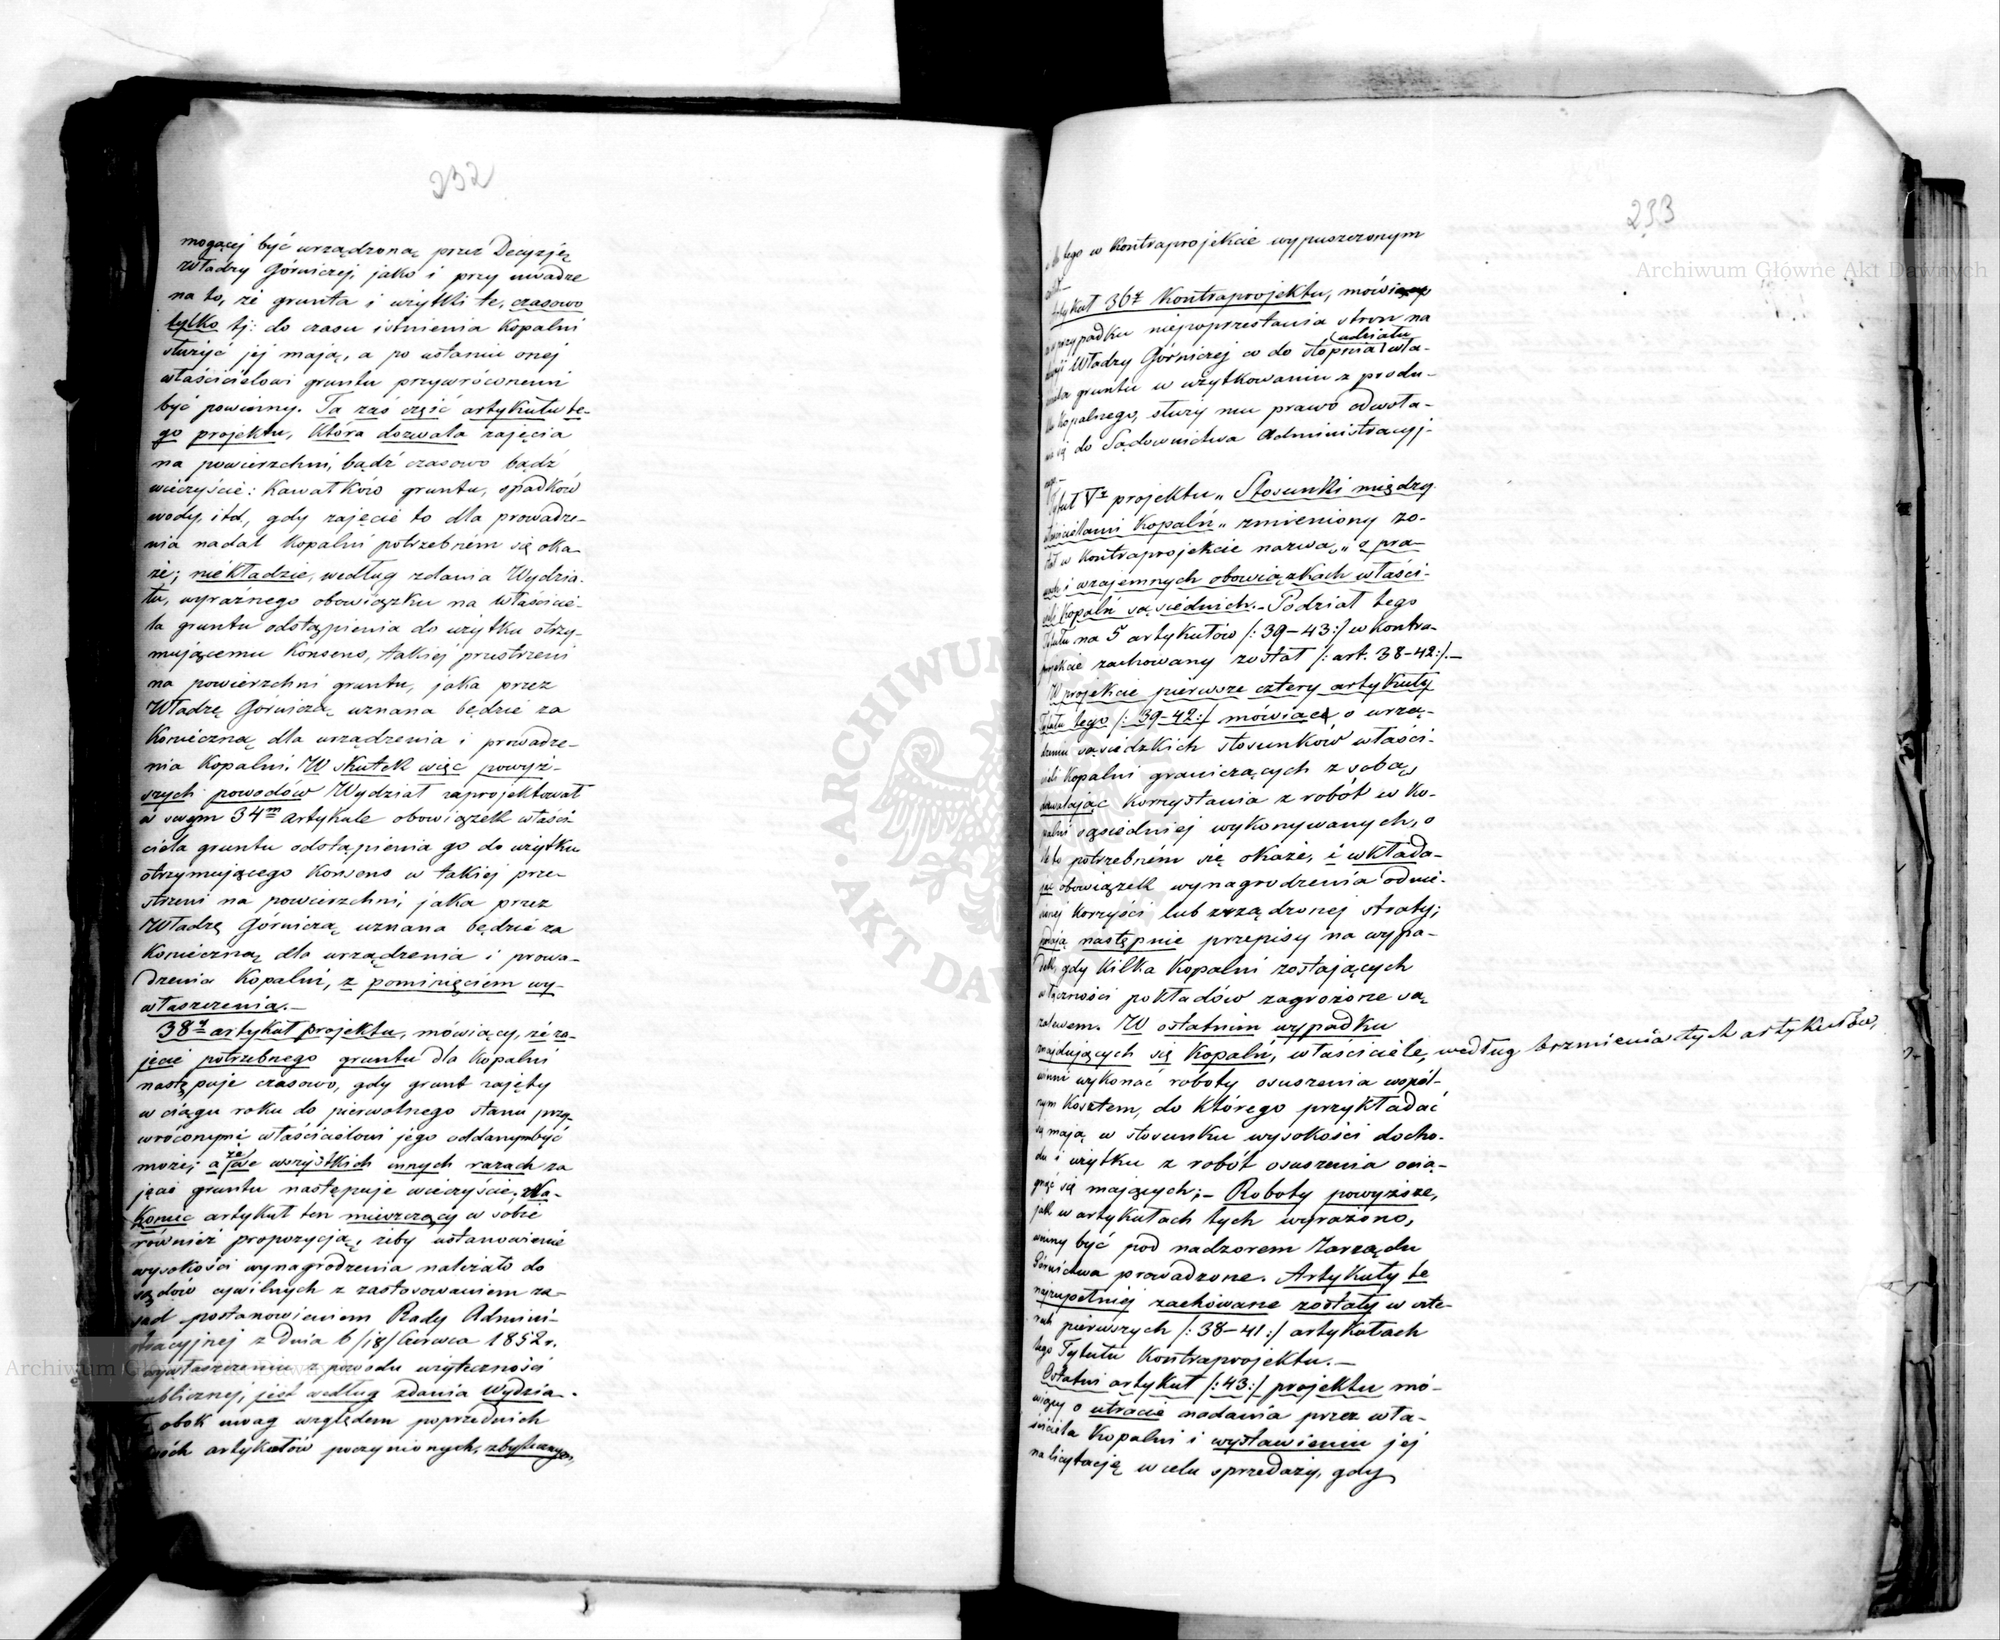 232
mogącej być urządzoną przez Decyzję
Władzy Górniczej, jako i przy uwadze
na to, że grunta i użytki te, czasowo
tylko tj: do czasu istnienia Kopalni
służyć jej mają, a po ustaniu onej
właścicielowi gruntu przywróconemi
być powinny. Ta zaś część artykułu te-
go projektu, która dozwala zajęcia
na powierzchni, bądź czasowo bądź
wieczyście: Kawałków gruntu, spadków
wody, itd, gdy zajęcie to dla prowadze-
nia nadal Kopalni potrzebném się oka-
że; niekładzie, według zdania Wydzia-
łu, wyraźnego obowiązku na właścicie-
la gruntu odstąpienia do użytku otrzy-
mującemu Konsens, takiej przestrzeni
na powierzchni gruntu, jaka przez
Władzę Górniczą uznana będzie za
Konieczną dla urządzenia i prowadze-
nia Kopalni. W skutek więc powyż-
szych powodów Wydział zaprojektował
w swym 34m artykule obowiązek właści
ciela gruntu odstąpienia go do użytku
otrzymującego Konsens w takiej prze-
strzeni na powierzchni, jaka przez
Władzę Górniczą uznana będzie za
Konieczną dla urządzenia i prowa-
dzenia Kopalni, z pominięciem wy-
właszczenia.—
38y artykuł projektu, mówiący, że za-
jęcie potrzebnego gruntu dla Kopalni
następuje czasowo, gdy grunt zajęty
w ciągu roku do pierwotnego stanu przy-
wróconym i właścicielowi jego oddanym być
może; a że we wszystkich innych razach za
jęcie gruntu następuje wieczyście. Na-
koniec artykuł ten mieszczący w sobie
również propozycją, żeby ustanowienie
wysokości wynagrodzenia należało do
sądów cywilnych z zastosowaniem za-
sad postanowieniem Rady Admini-
stracyjnej z dnia 6/18/ Czerwca 1852 r.
o wywłaszczeniu z powodu użyteczności
publicznej, jest według zdania Wydzia-
łu obok uwag względem poprzednich
dwóch artykułów poczynionych, zbytecznym,
233
tego w Kontraprojekcie wypuszczonym
został
Artykuł 36y Kontraprojektu, mówiący
że w przypadku niepoprzestania stron na
Władzy Górniczej co do stopnia udziału wła-
ściciela gruntu w użytkowaniu z produ-
ktu Kopalnego, służy mu prawo odwoła-
nia się do Sądownictwa Administracyj-
nego.—
Tytuł Vy projektu „Stosunki między
właścicielami Kopalń„ zmieniony zo-
stał w Kontraprojekcie nazwą „o pra-
wach i wzajemnych obowiązkach właści-
cieli Kopalń sąsiednich.— Podział tego
Tytułu na 5 artykułów /: 39–43:/ w Kontra-
projekcie zachowany został /: art. 38–42:/.—
W projekcie pierwsze cztery artykuły
Tytułu tego /: 39–42:/ mówiące o urzą-
dzeniu sąsiedzkich stosunków właści-
cieli Kopalni graniczących z sobą,
dozwalając korzystania z robót w Ko-
palni sąsiedniej wykonywanych, o
ile to potrzebném się okaże, i wkłada-
jąc obowiązek wynagrodzenia odnie-
sionej korzyści lub zrządzonej straty;
podają następnie przepisy na wypa-
dek, gdy Kilka Kopalni zostających
w łączności pokładów zagrożone są
zalewem. W ostatnim wypadku
znajdujących się Kopalń, właściciele, według brzmienia tych artykułów,
winni wykonać roboty osuszenia wspól-
nym Kosztem, do którego przykładać
się mają w stosunku wysokości docho-
du i użytku z robót osuszenia osią-
gnąć się mających;— Roboty powyższe,
jak w artykułach tych wyrażono,
winny być pod nadzorem Zarządu
Górnictwa prowadzone. Artykuły te
najzupełniej zachowane zostały w czte-
rech pierwszych /: 38–41:/ artykułach
tego Tytułu Kontraprojektu.—
Ostatni artykuł /: 43:/ projektu mó-
wiący o utracie nadania przez wła-
ściciela Kopalni i wystawieniu jej
na licytacją w celu sprzedaży, gdy
Archiwum Główne Akt Dawnych